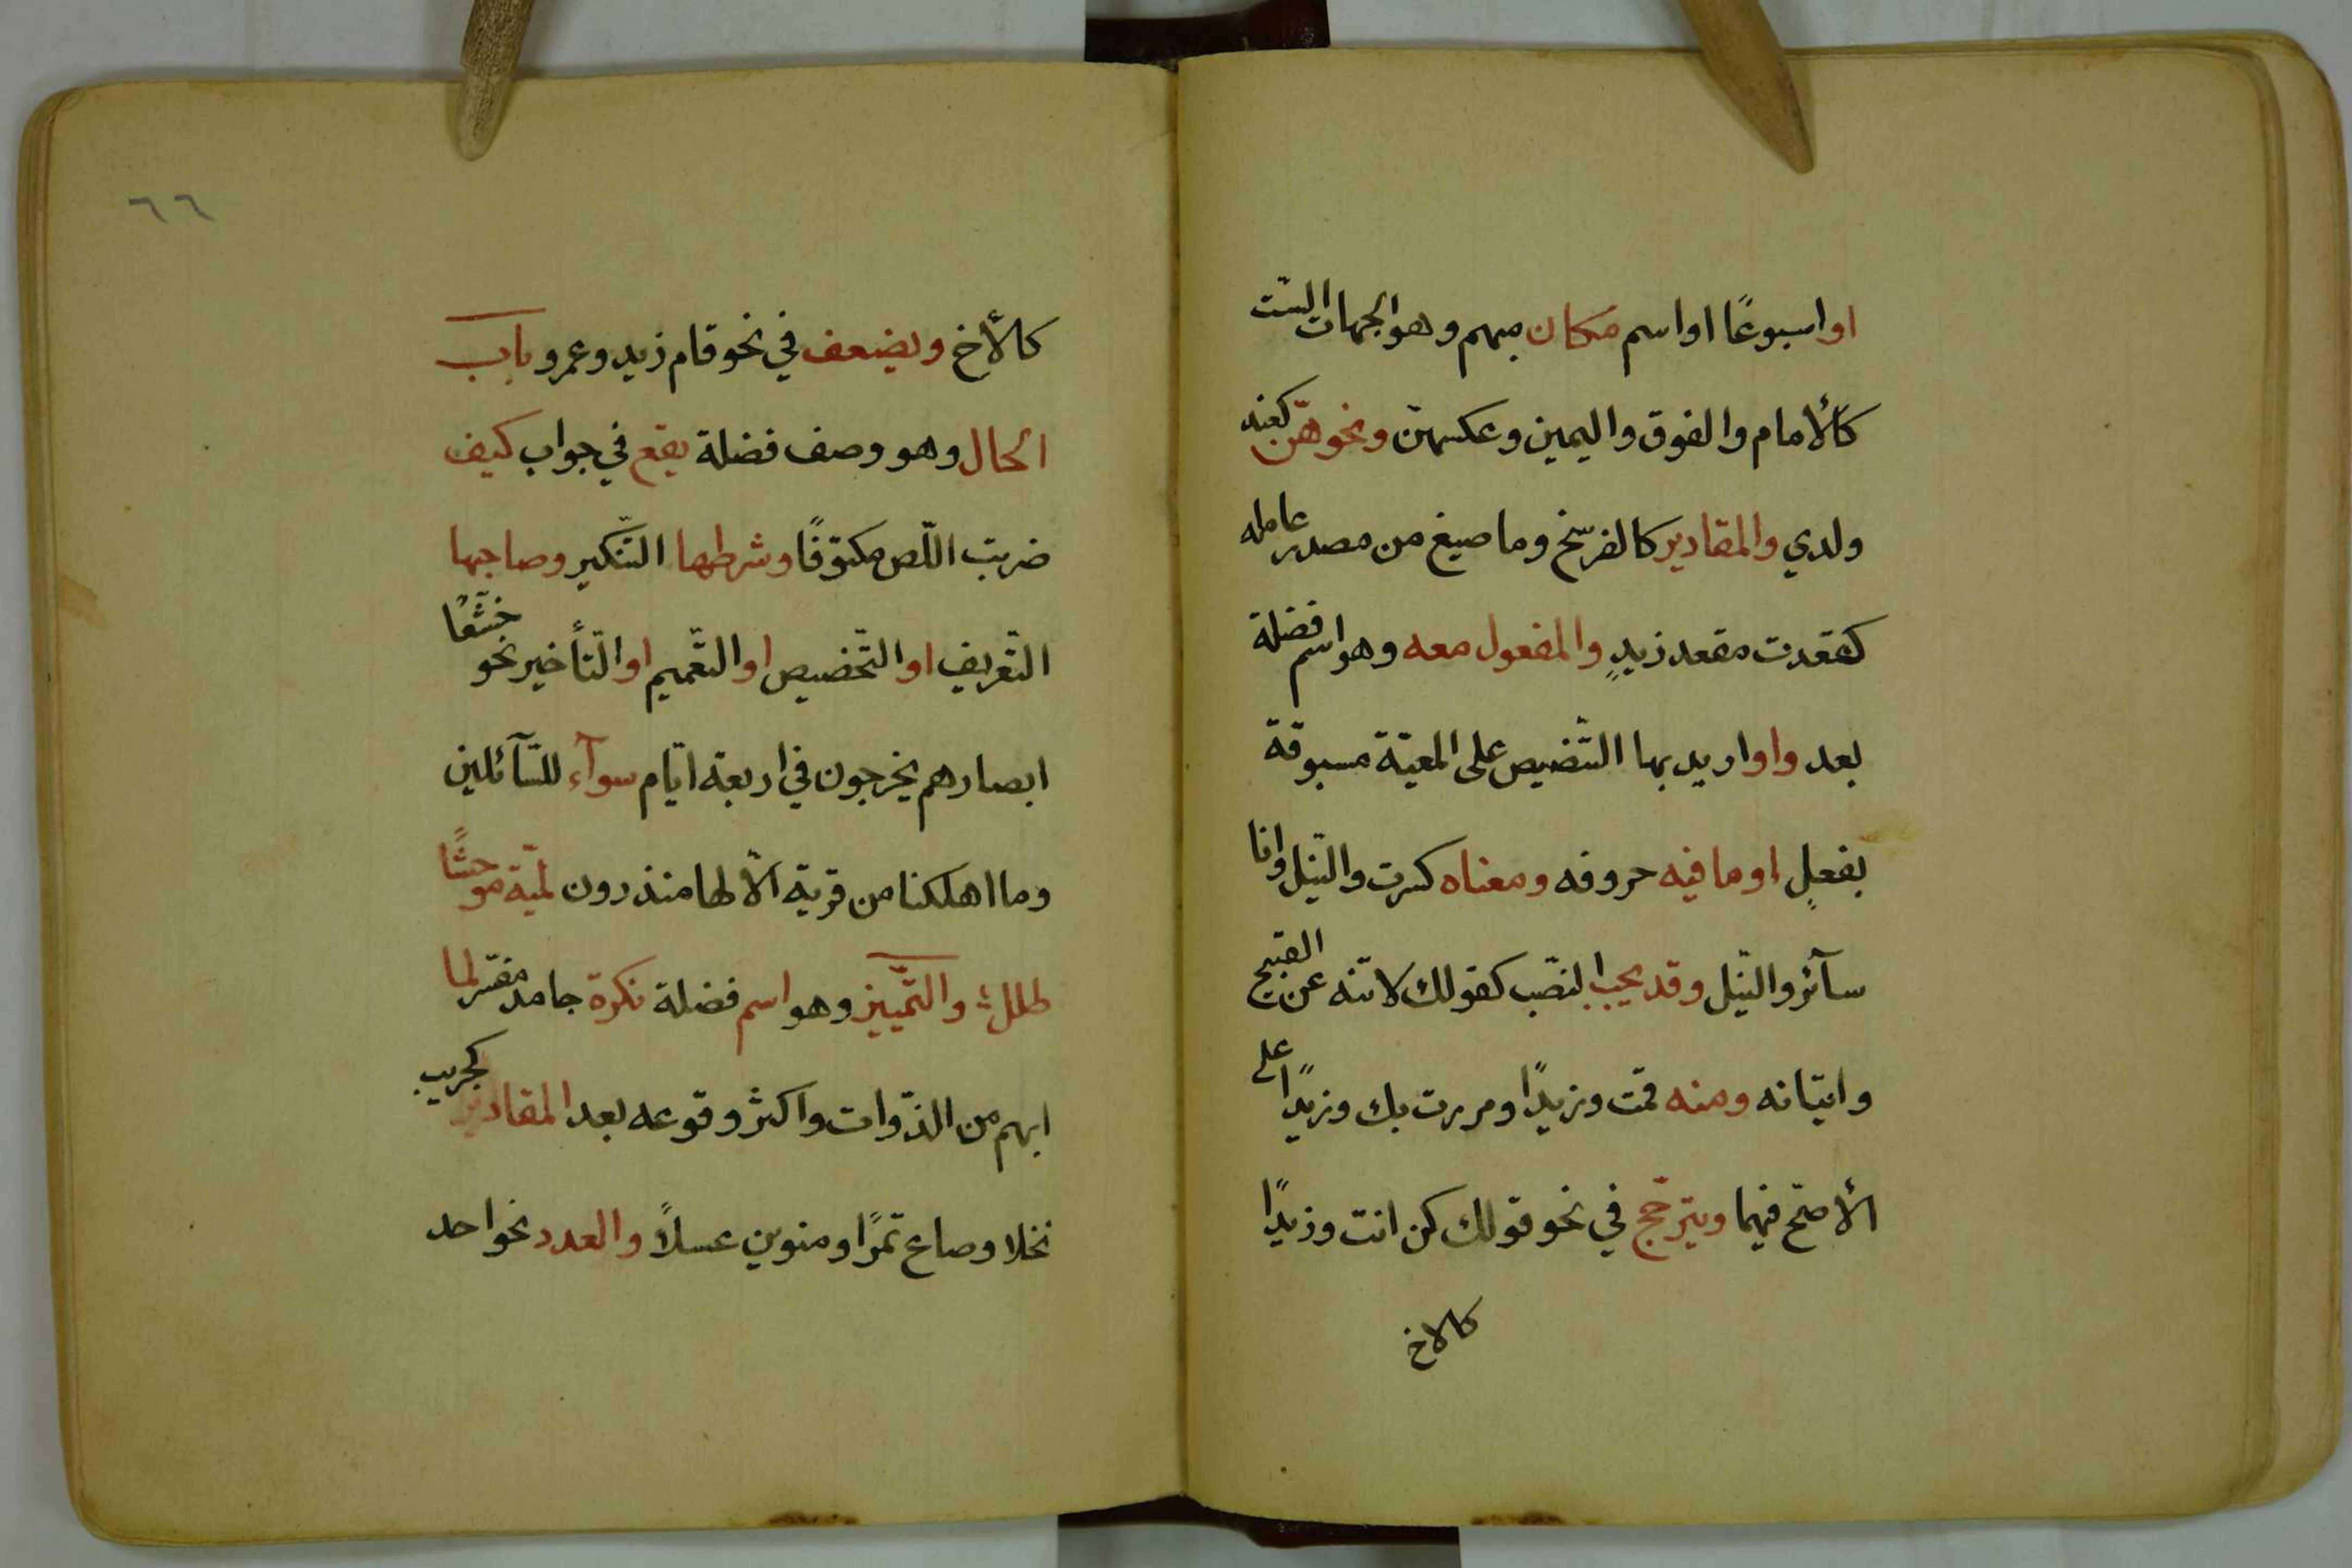 او اسبوعًا او اسم مكان مبهم وهو الجهات الستّ
كالأمام والفوق واليمين وعكسهنّ ونحوهنّ كعند
ولدي والمقادير كالفرسخ وما صيغ من مصدر عامله
كقعدت مقعد زيدٍ والمفعول معه وهو اسم فضلة
بعد واو اريد بها التّنصيص على المعيّة مسبوقة
بفعلٍ او ما فيه حروفه ومعناه كسرت والنّيل وانا
سآئر والنّيل وقد يجب النّصب كقولك لا تنه عن القبيح
واتيانه ومنه قمت وزيدًا ومررت بك وزيدًا على
الأصحّ فيهما ويترجّح في نحو قولك كن انت وزيدًا
كالاخ
٦٦
كالأخ ويضعف في نحو قام زيد وعمرو باب
الحال وهو وصف فضلة يقع في جواب كيف
ضربت اللّص مكتوفًا وشرطها التّنكير وصاحبها
التّعريف او التّخصيص او التّعميم او التّأخير نحو خشّعًا
ابصارهم يخرجون في اربعة ايّام سوآء للسّآئلين
وما اهلكنا من قرية الّا لها منذرون لميّة موحشًا
طلل والتّمييز وهو اسم فضلة نكرة جامد مفسّر لما
ابهم من الذّوات واكثر وقوعه بعد المقادير كجريب
نخلا وصاع تمرًا ومنوين عسلًا والعدد نحو احد